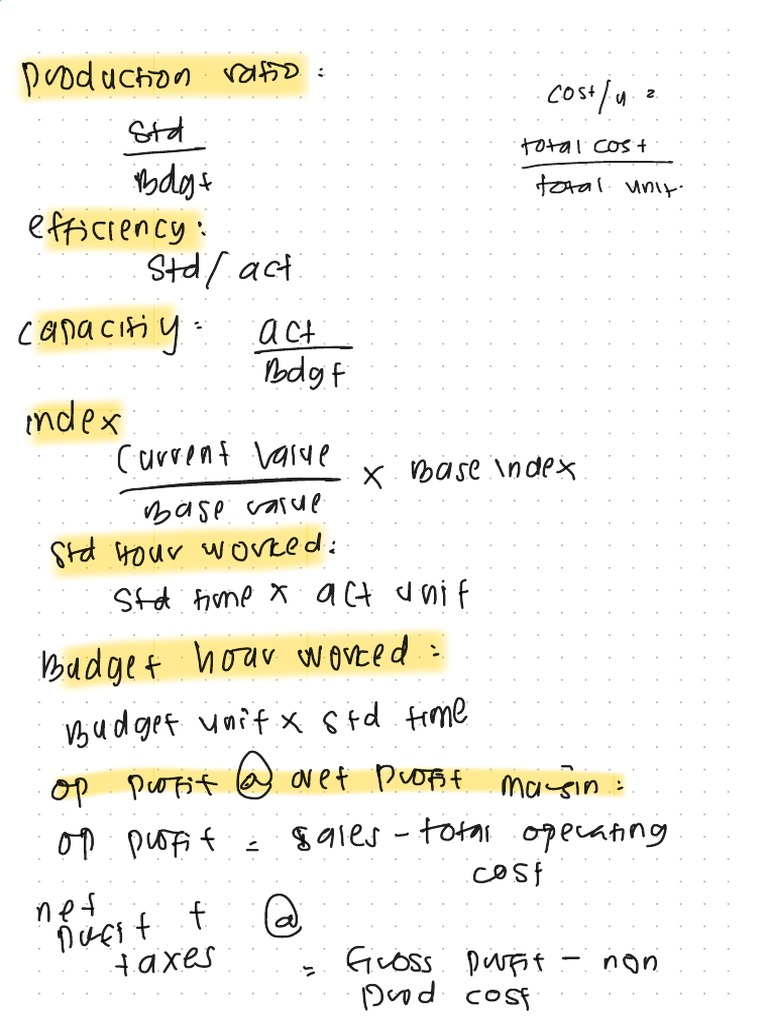 Production ratio :
cost/u =
Std
Bdgt
total cost
total unit.
efficiency :
Std / act
capacity : act
Bdgt
index
Current value
Base value
x Base index
Std hour worked :
Std time x act unit
Budget hour worked :
Budget unit x std time
op profit @ net profit margin :
op profit = sales - total operating
cost
net
profit + @
taxes
= Gross profit - non
prod cost